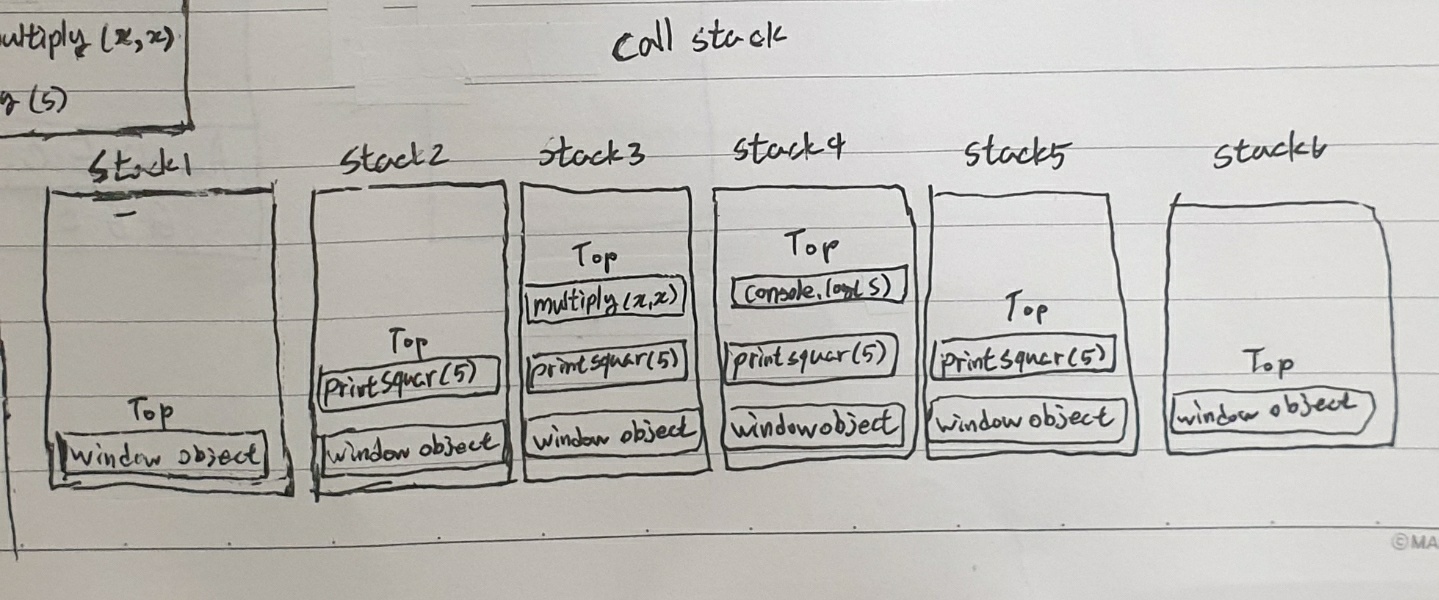 ultiply (x,x)
y (5)
Call stack
Stack1
Top
window object
Stack2
Top
printSquar(5)
window object
Stack3
Top
multiply(x,x)
printsquar(5)
window object
Stack4
Top
console.log(s)
printsquar(5)
window object
Stack5
Top
printsquar(5)
window object
Stack6
Top
window object
©MA